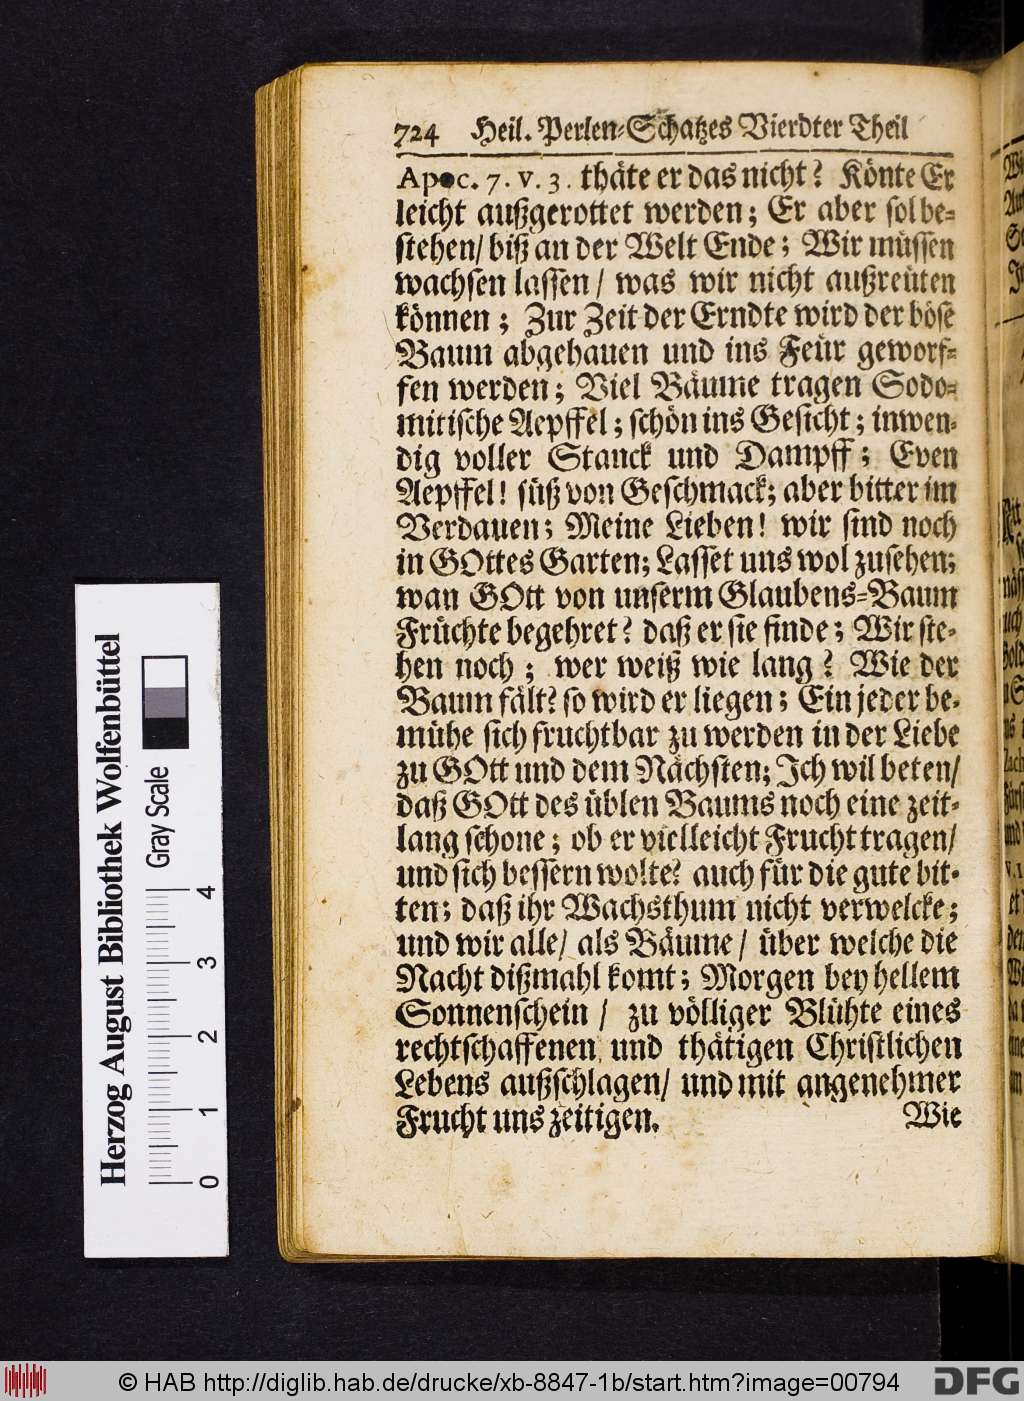 724 Heil. Perlen-Schatzes Vierdter Theil
Apoc. 7. v. 3. thäte er das nicht? Könte Er
leicht außgerottet werden; Er aber sol be-
stehen/ biß an der Welt Ende; Wir müssen
wachsen lassen / was wir nicht außreüten
können; Zur Zeit der Erndte wird der böse
Baum abgehauen und ins Feür geworf-
fen werden; Viel Bäume tragen Sodo-
mitische Aepffel; schön ins Gesicht; inwen-
dig voller Stanck und Dampff; Even
Aepffel! süß von Geschmack; aber bitter im
Verdauen; Meine Lieben! wir sind noch
in GOttes Garten; Lasset uns wol zusehen;
wan GOtt von unserm Glaubens-Baum
Früchte begehret? daß er sie finde; Wir ste-
hen noch; wer weiß wie lang? Wie der
Baum fält? so wird er liegen; Ein jeder be-
mühe sich fruchtbar zu werden in der Liebe
zu GOtt und dem Nächsten; Ich wil beten/
daß GOtt des üblen Baums noch eine zeit-
lang schone; ob er vielleicht Frucht tragen/
und sich bessern wolte? auch für die gute bit-
ten; daß ihr Wachsthum nicht verwelcke;
und wir alle/ als Bäume/ über welche die
Nacht dißmahl komt; Morgen bey hellem
Sonnenschein / zu völliger Blühte eines
rechtschaffenen und thätigen Christlichen
Lebens außschlagen/ und mit angenehmer
Frucht uns zeitigen. Wie
Herzog August Bibliothek Wolfenbüttel
Gray Scale
0 1 2 3 4
© HAB http://diglib.hab.de/drucke/xb-8847-1b/start.htm?image=00794
DFG